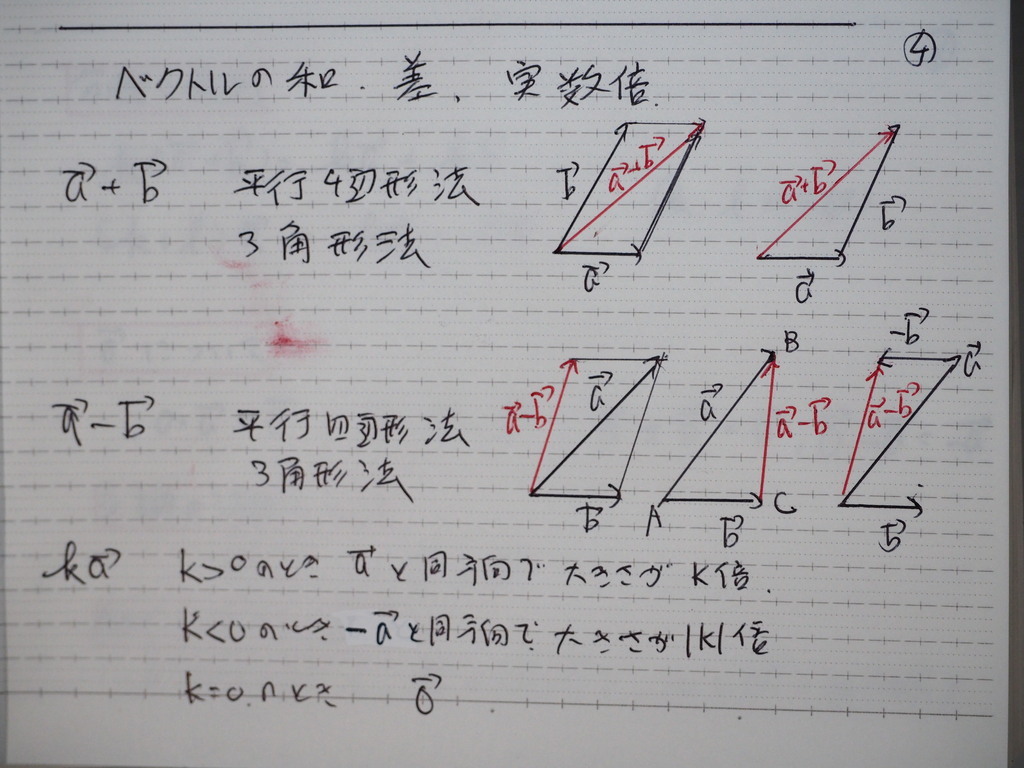 ④
ベクトルの和、差、実数倍.
a⃗+b⃗ 平行4辺形法
3角形法
b⃗ a⃗+b⃗ a⃗
a⃗+b⃗ b⃗ a⃗
a⃗-b⃗ 平行四辺形法
3角形法
a⃗-b⃗ a⃗ b⃗
B a⃗ a⃗-b⃗ A b⃗ C
-b⃗ a⃗ a⃗-b⃗ b⃗
ka⃗ k>0のとき a⃗と同方向で 大きさが k倍.
k<0のとき -a⃗と同方向で 大きさが|k|倍
k=0のとき 0⃗